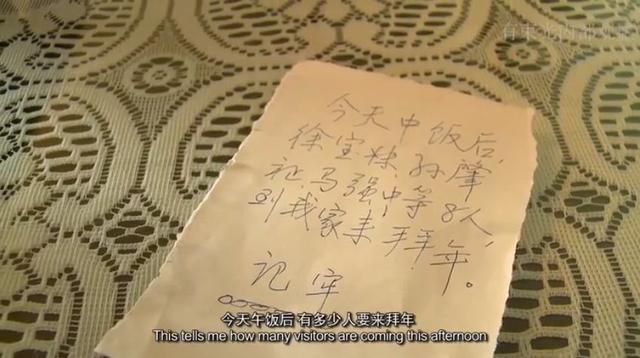 今天中饭后,
徐宝
孙肇
祉,马强中等8人,
到我家来拜年。
记牢
今天午饭后 有多少人要来拜年
This tells me how many visitors are coming this afternoon